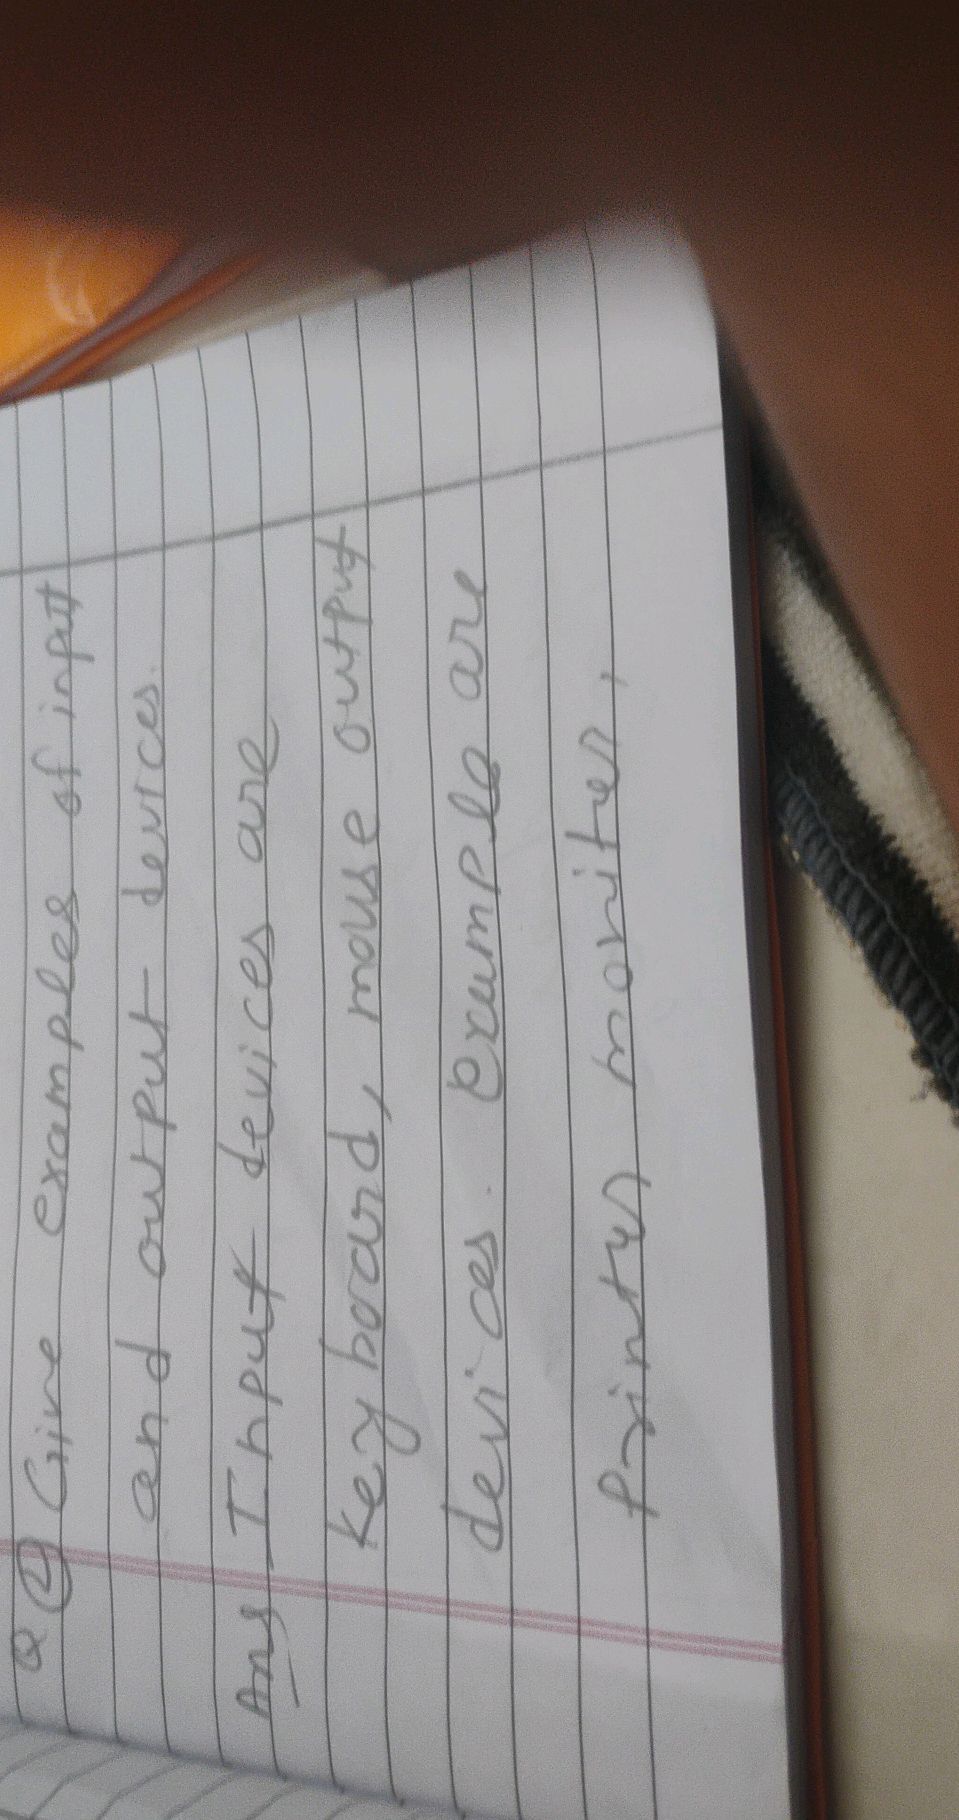 Q ① Give examples of input
and output devices.
Ans Input devices are
keyboard, mouse output
devices. Example are
Printer moniter,